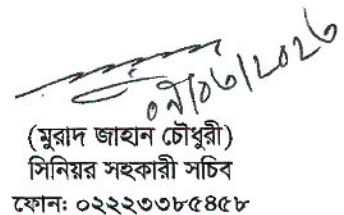 (মুরাদ জাহান চৌধুরী)
সিনিয়র সহকারী সচিব
ফোনঃ ০২২২৩৩৮৫৪৫৮